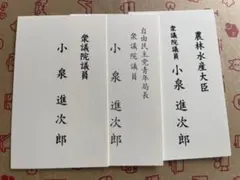 衆議院議員
小泉進次郎
自由民主党青年局長
衆議院議員
小泉進次郎
農林水産大臣
衆議院議員
小泉進次郎